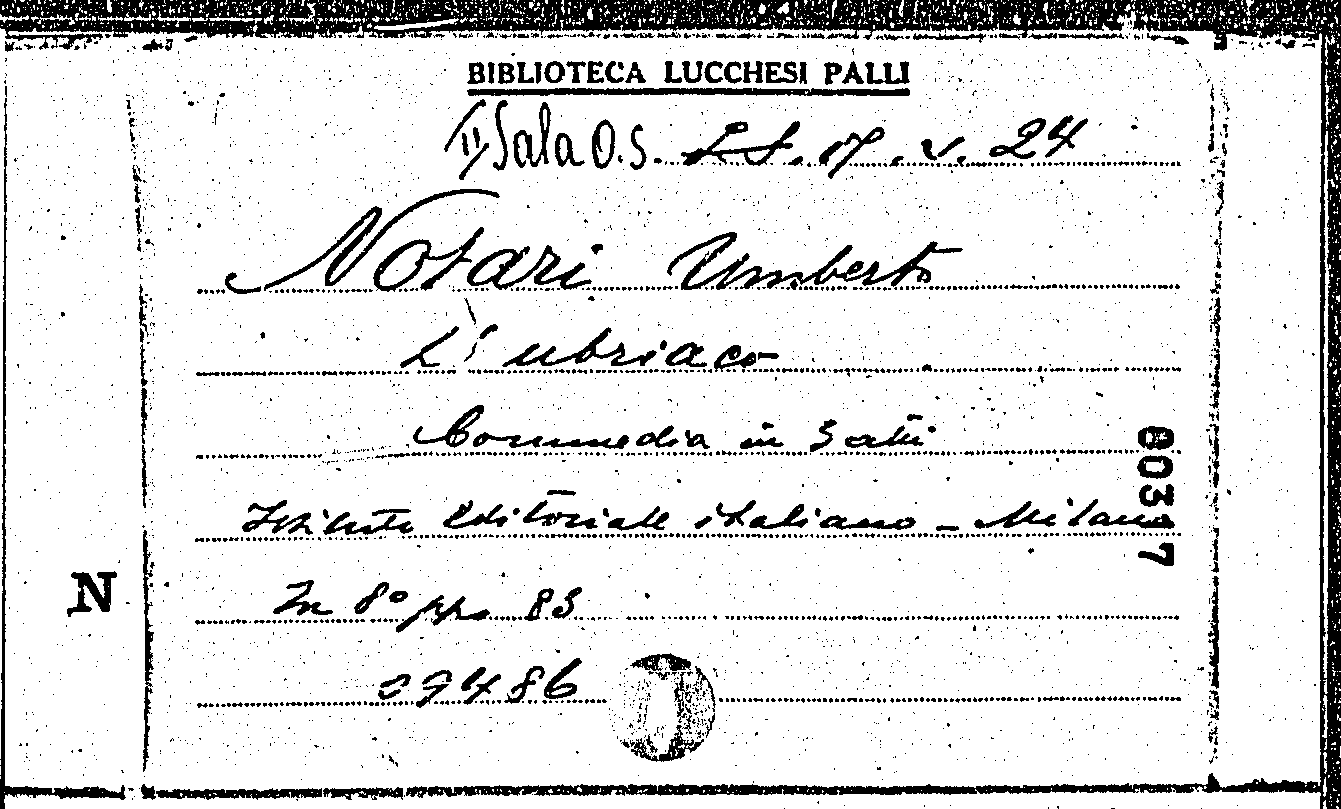 BIBLIOTECA LUCCHESI PALLI
II Sala O.S. L.S. 17. v. 24
Notari Umberto
L'ubriaco
Commedia in 3 atti
Istituto Editoriale italiano - Milano
In 8° pp. 83
N
8037